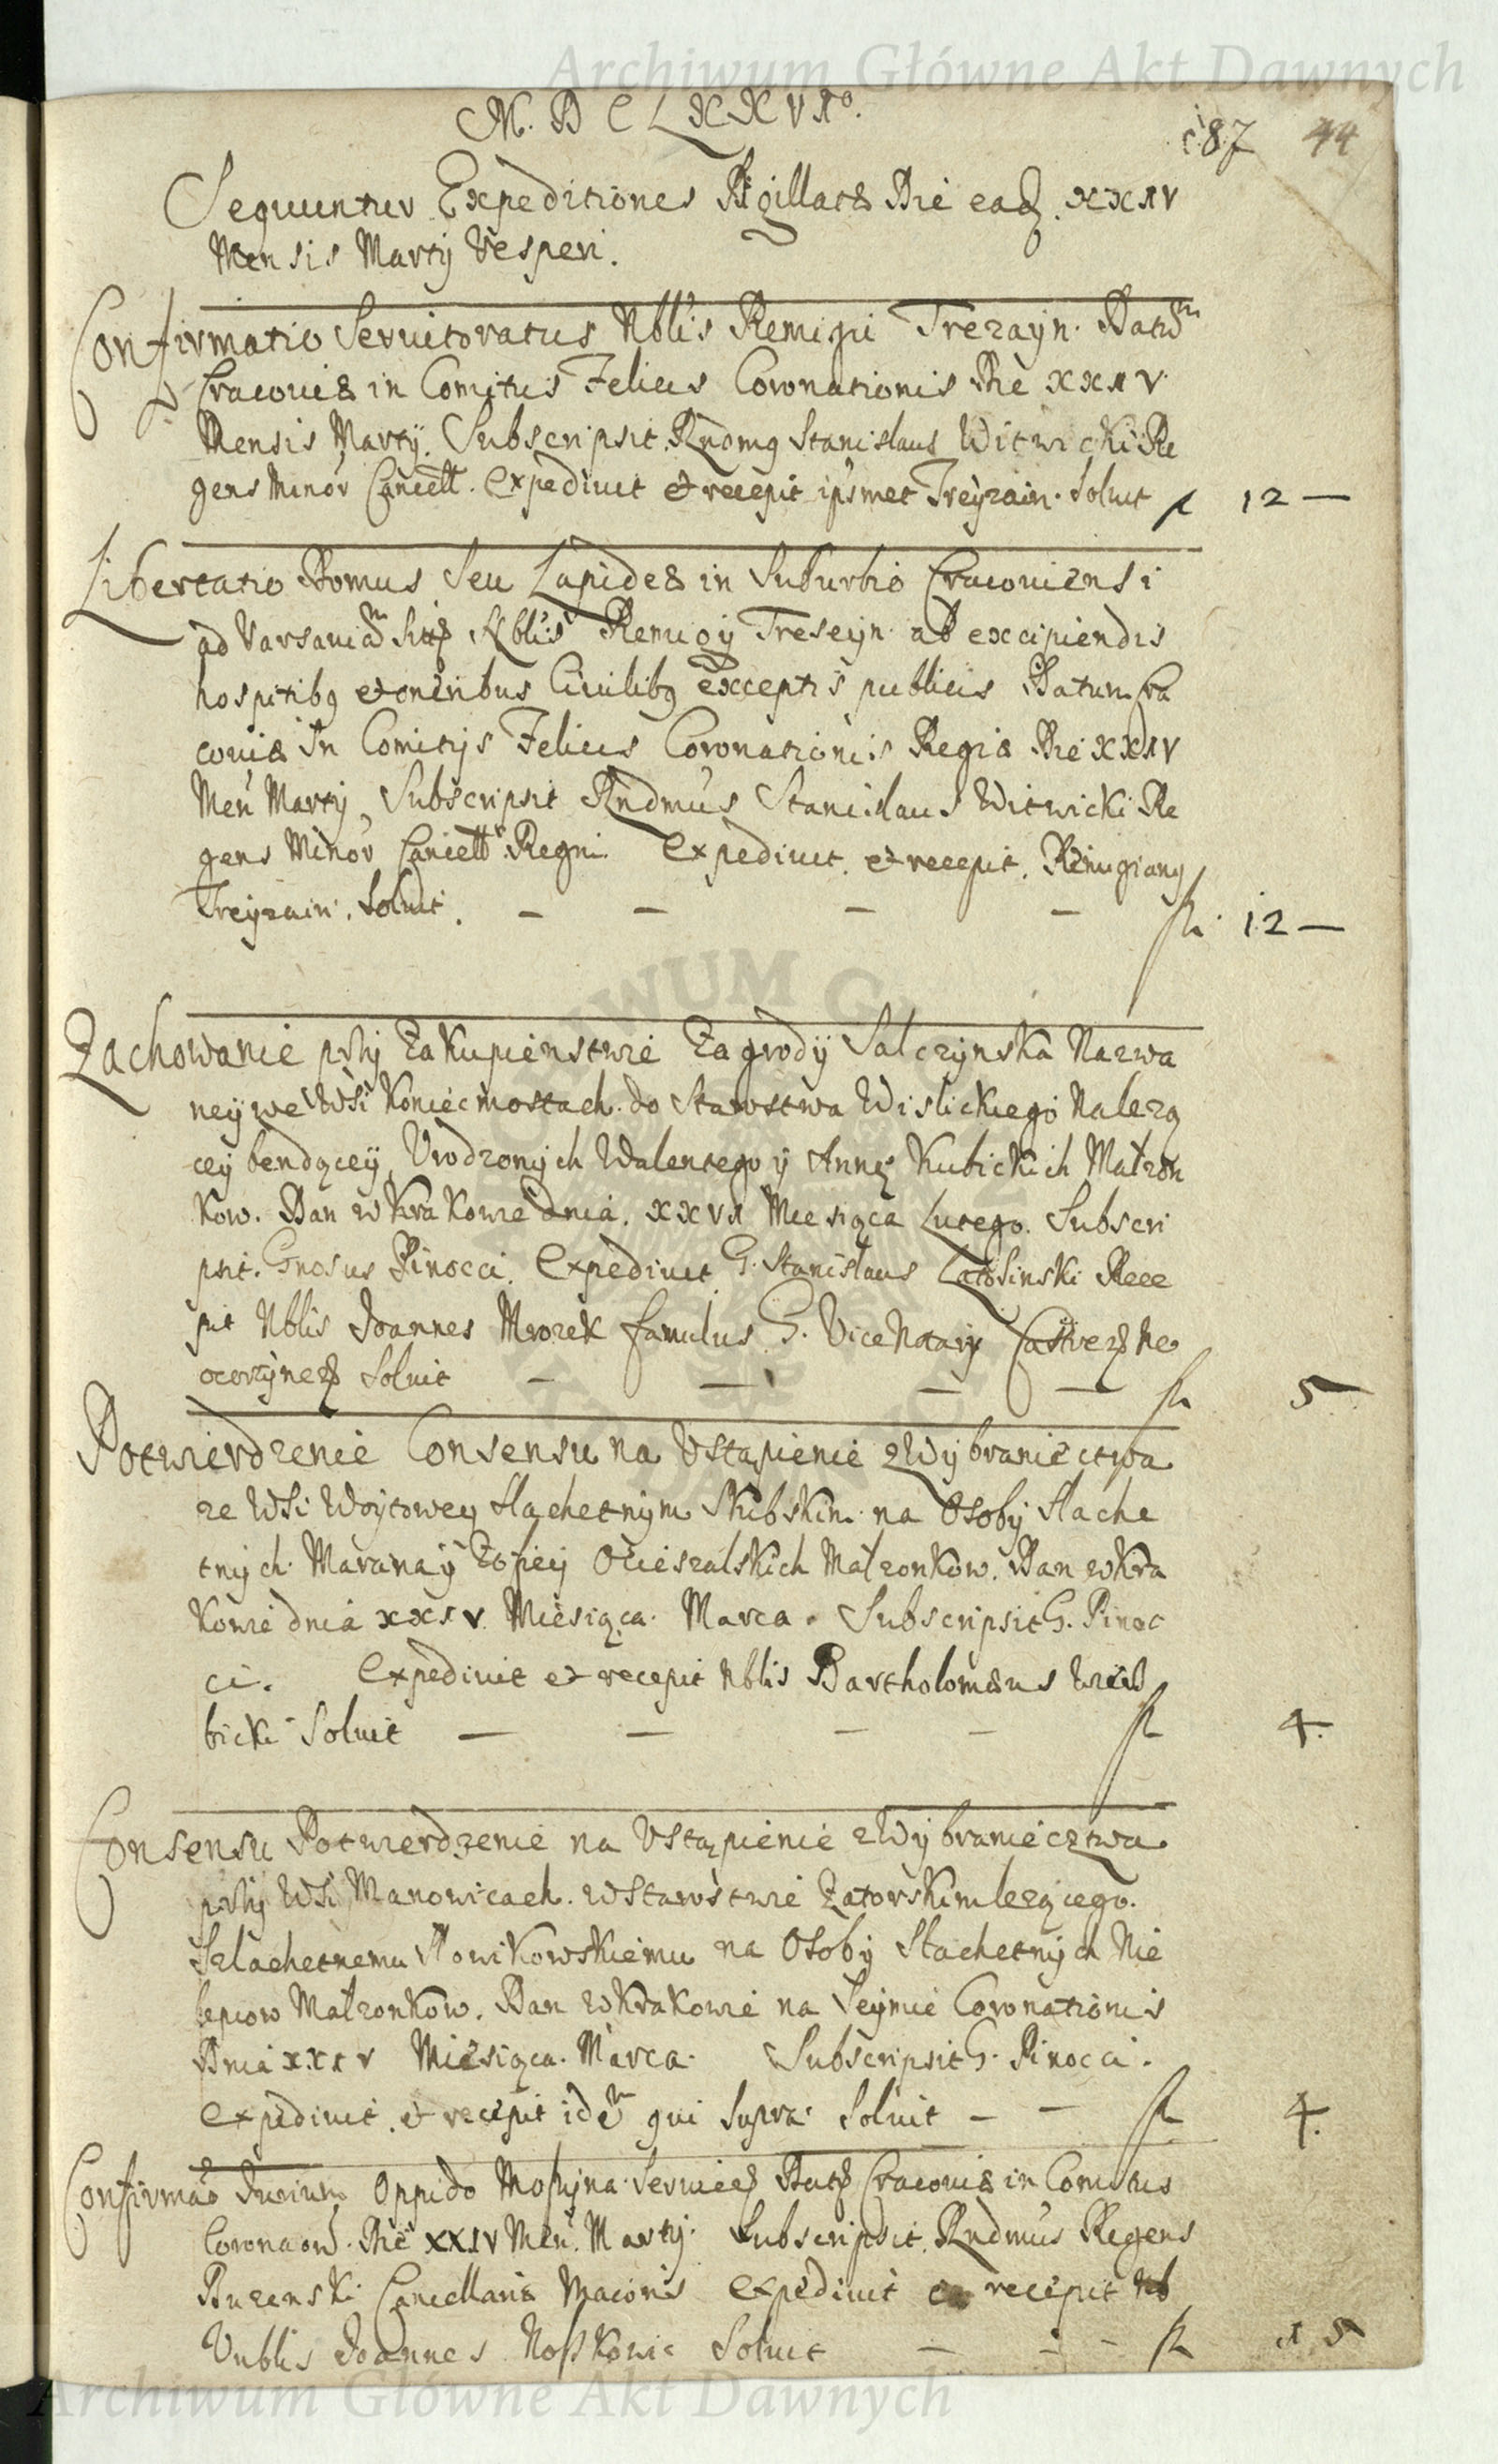 Archiwum Główne Akt Dawnych
M. D C L X X V I°.
187 44
Sequuntur Expeditiones Sigillatæ Die eadē. XXIV
Mensis Martij Vesperi.
Confirmatio Seruitoratus Nblis Remigii Trezayn. Datū
Cracouiæ in Comitiis Felicis Coronationis Die XXIV.
Mensis Martij. Subscripsit. Rndmg Stanislaus Witwicki Re
gens Minor Cancell. Expediuit et recepit ipsmet Treyzain. Soluit fl 12 —
Libertatio Domus Seu Lapideæ in Suburbio Cracouiensi
ad Varsauiam Nblis Remigij Treseyn ab excipiendis
hospitibq et oneribus Ciuilibq exceptis publicis Datum Cra
couiæ In Comitijs Felicis Coronationis Regiæ Die XXIV
Men Martij, Subscripsit Rndmus Stanislaus Witwicki Re
gens Minor Cancell Regni Expediuit. et recepit.
Treyzain. Soluit. — — — — fl. 12 —
Zachowanie przÿ Zakupienstwie Zagrodÿ Salczynska Nazwa
neÿ we WSi Koniecmostach do Starostwa Wislickiego Nalezą
ceÿ bendąceÿ, Vrodzonych Walentego ÿ Annę Kubickich Małzon
kow. Dan w Krakowie Dnia. XXVI Miesiąca Lutego. Subscri
psit. Gnosus Pinocci. Expediuit G. Stanislaus Latosinski Rece
pit Nblis Joannes Mrozek famulus G. Vice Notarij
Soluit — — — — fl 5 —
Potwierdzenie Consensu na Vstąpienie z Wÿbraniectwa
ze WSi Woÿtoweÿ Slachetnÿm Skibskim na Osobÿ Slache
tnych Marcina ÿ Zofieÿ Ocieszalskich Małzonkow. Dan w Kra
kowie dnia XXIV Miesiąca. Marca. Subscripsit G. Pinoc
ci. Expediuit et recepit Nblis Bartholomæus
bicki Soluit — — — — fl 4.
Consensu Potwierdzenie na Vstąpienie z Wÿbraniecztwa
przÿ WSi Manowicach w Starostwie Zatorskim lezącego.
Szlachetnemu Slowikowskiemu na Osobÿ Slachetnych Nie
lepiow Małzonkow. Dan w Krakowie na Seÿmie Coronationis
Dnia XXIV Miesiąca. Marca. Subscripsit G. Pinocci.
Expediuit et recepit idem qui Supra. Soluit — — fl 4.
Confirmāo Jurium Oppido Mosÿna Cracouiæ in Comitiis
Die XXIV Men. Martij. Subscripsit. Rndmus Regens
Buzenski Cancellariæ Maioris Expediuit et recepit
Joannes Noskowic Soluit — — — fl 15
Archiwum Główne Akt Dawnych